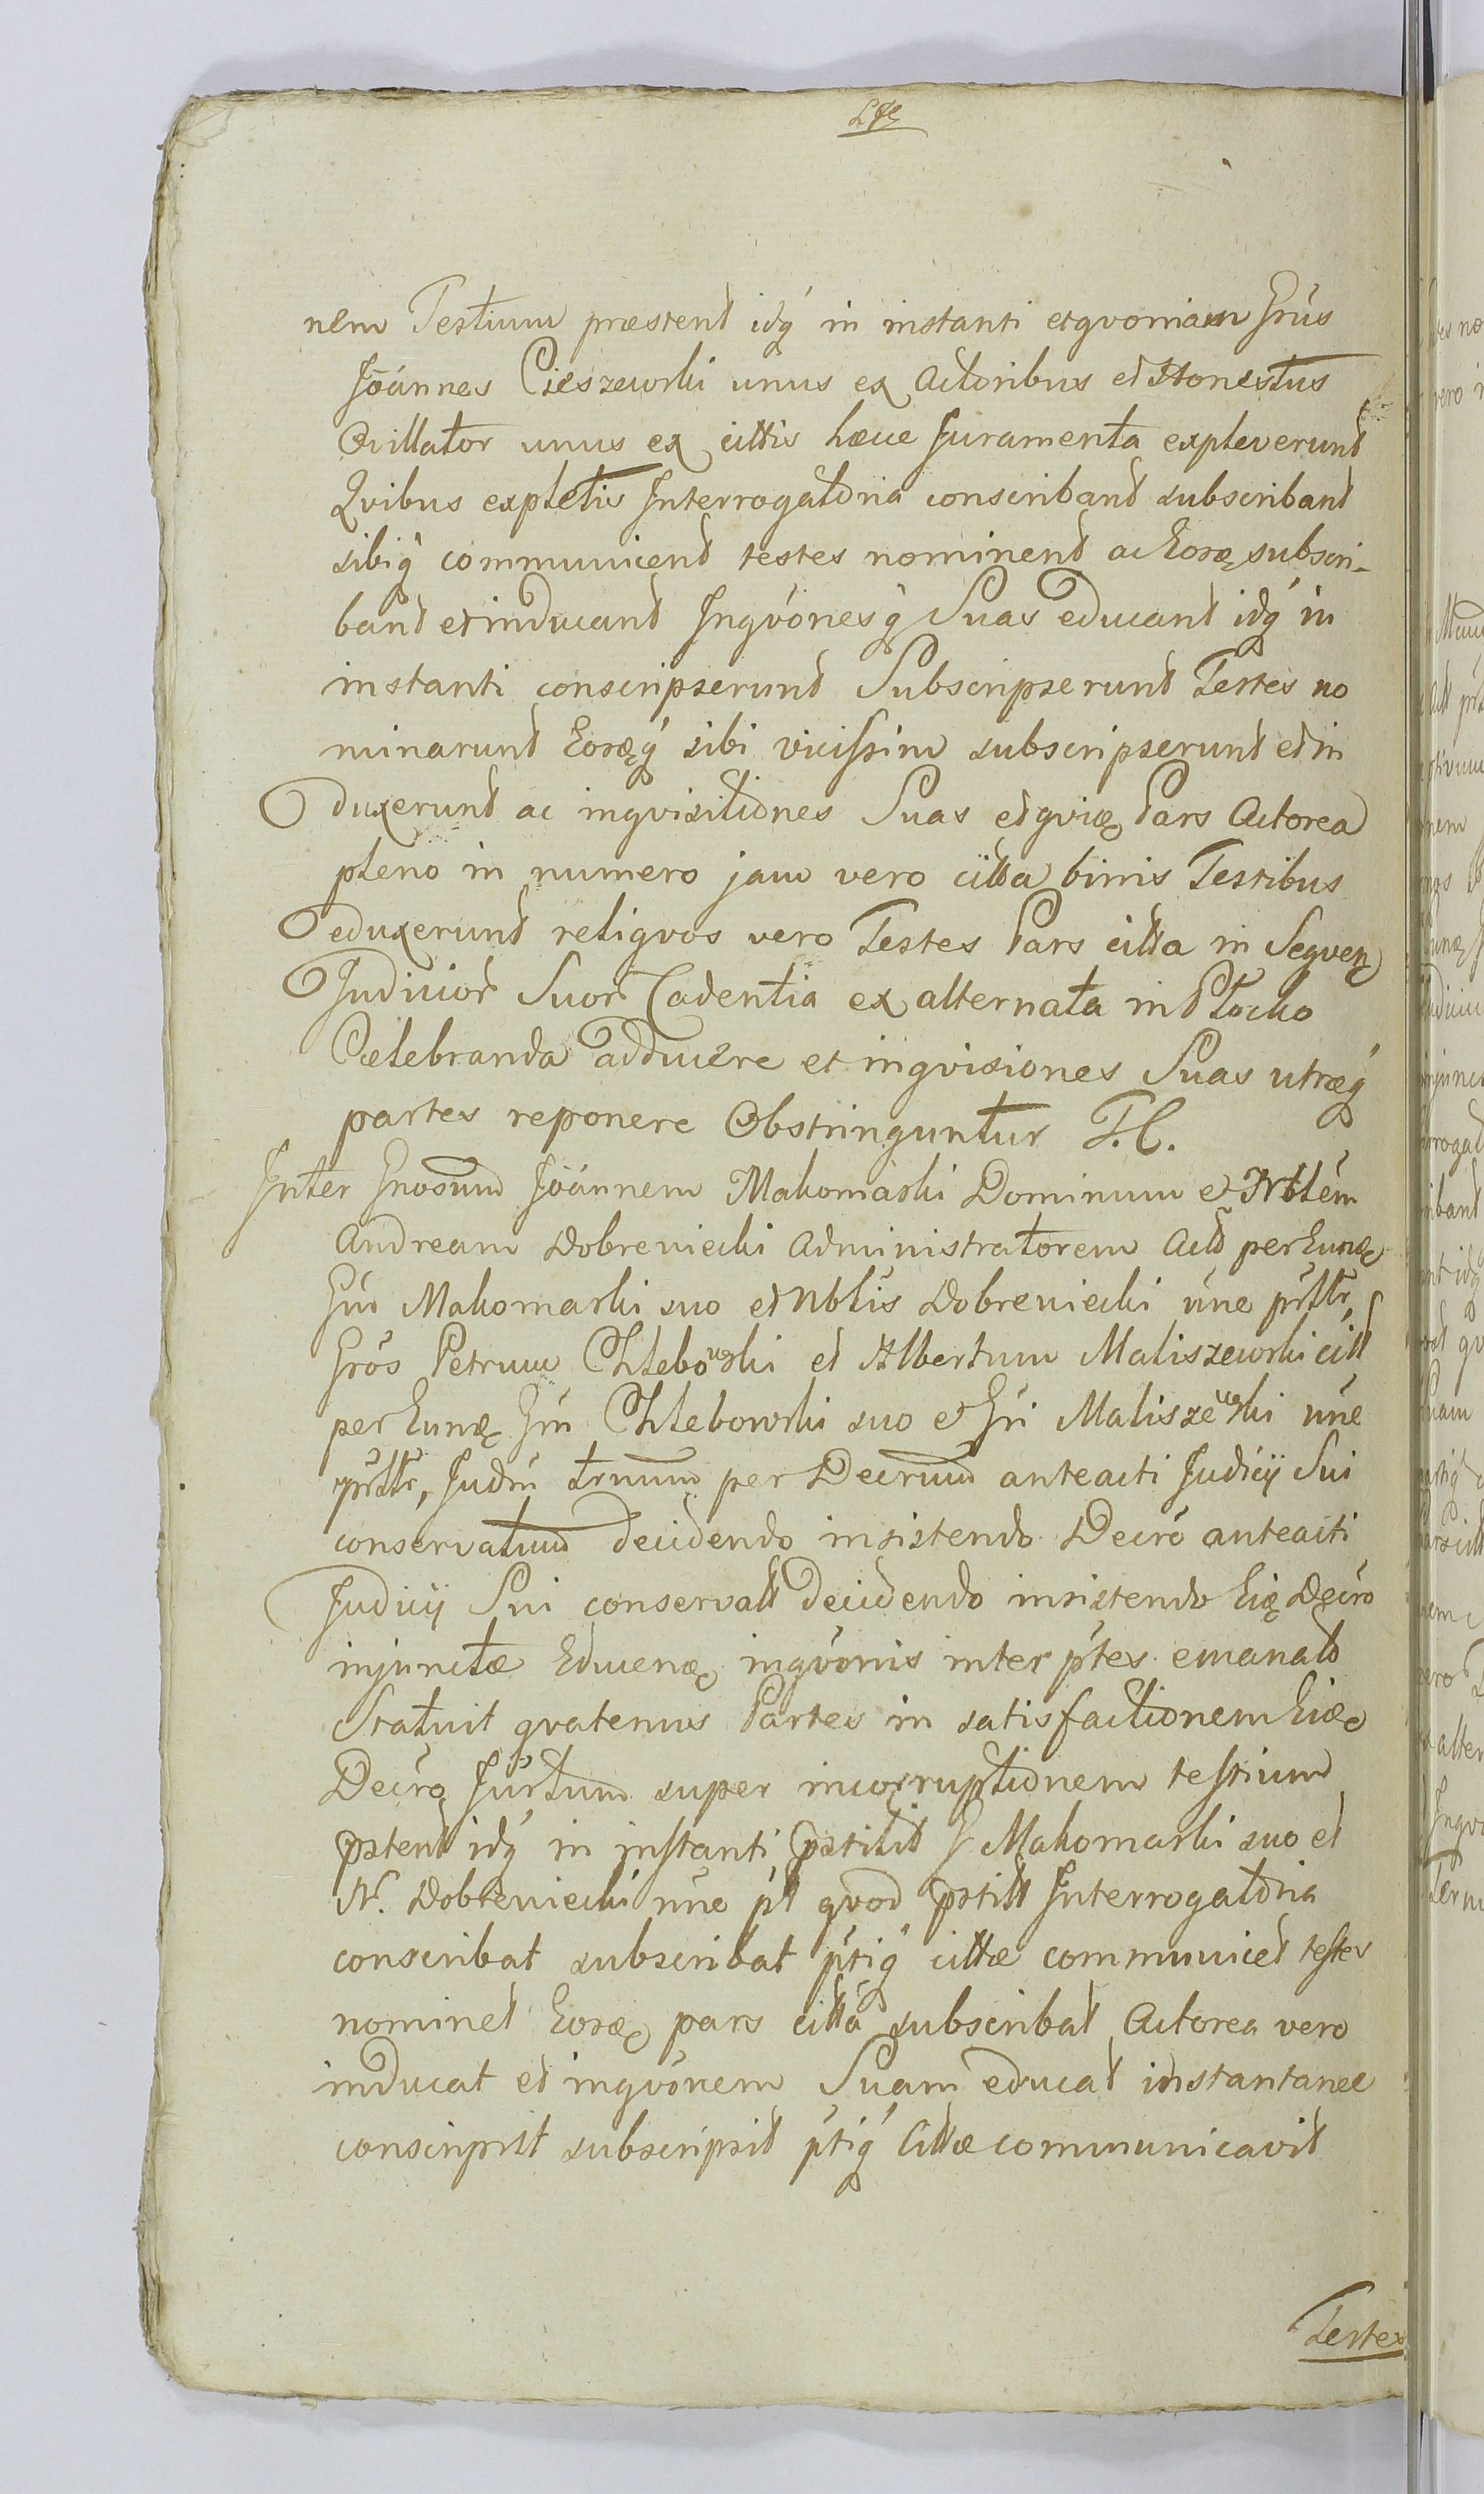 nem Testium præstent idq́ in instanti et qvoniam Grús
Joánnes Cieszewski unus ex Actoribus et Honestus
Qvillator unus ex cittis hæcce Juramenta expleverunt
Qvibus expletis Interrogatoria conscribant subscribant
sibiq́ communicent testes nominent ac Eosq subscri-
bant et inducant Inqvónesq́ Suas educant idq́ in
instanti conscripserunt Subscripserunt Testes no
minarunt Eosqq́ sibi vicissim subscripserunt et in
duxerunt ac inqvisitiones Suas et qviæ Pars Actorea
pleno in numero jam vero citta binis Testibus
eduxerunt reliqvos vero Testes Pars citta in Seqven
Judicior Suor Cadentia ex alternata in Plocko
Cælebranda adducere et inqvisiones Suas utræq́
partes reponere Obstringuntur T. C.
Inter Gnosum Joánnem Makomaski Dominum et Nblém
Andream Dobreniecki Administratorem Act per Eunq
Gúo Makomaski suo et Nblis Dobreniecki úne prltr,
Grós Petrum Chlebowski et Albertum Maliszewski citt
per Eunq Gm Chlebowski suo et Gri Maliszewski úne
prltr, Judm trnum per Decrum anteacti Judicij Sui
conservatum decidendo insistendo Decró anteacti
Judicij Sui conservatt decidendo insistendo Eiq Decró
injunctæ Educenq inqvónis inter ptes emanato
Statuit qvatenus Partes in satisfactionem Eiq
Decro Júrtum super incorruptionem testium
pstent idq́ in instanti pstitit G Makomaski suo et
N. Dobreniecki úne pl qvod pstitt Interrogatoria
conscribat subscribat ptiq́ cittæ communicet testes
nominet Eosq pars citta subscribat Actorea vero
inducat et inqvónem Suam educat instantanee
conscripsit subscripsit ptiq́ Cittæ communicavit
Testes